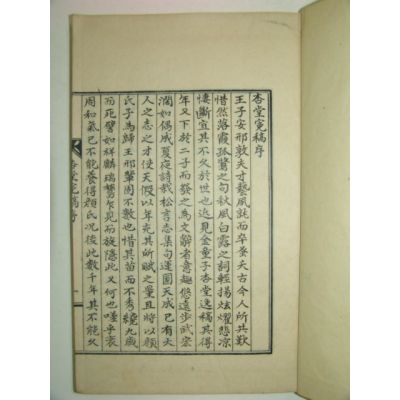 杏堂寃稿序
王子安邢敦夫才藝夙就而卒蚤夭古今人所共歎
惜然落霞孤鶩之句秋風白露之詞輕揚炫燿悲凉
悽斷宜其不久於世也迨見金童子杏堂逸稿其得
年又下於二子而發之爲文辭者意趣悠遠步武宏
濶如偶成夏夜詩栽松言志集句運圓天成已有大
人之志之才使天假以年充其所賦之量且將以顔
氏子爲歸王邢輩固不數也惜其苗而不秀纔九歲
而死譬如祥麟瑞鸞乍見而旋隱此又何也嗟乎衰
周和氣已不能養得顔氏況後此數千年其不能久
杏堂寃稿序
一